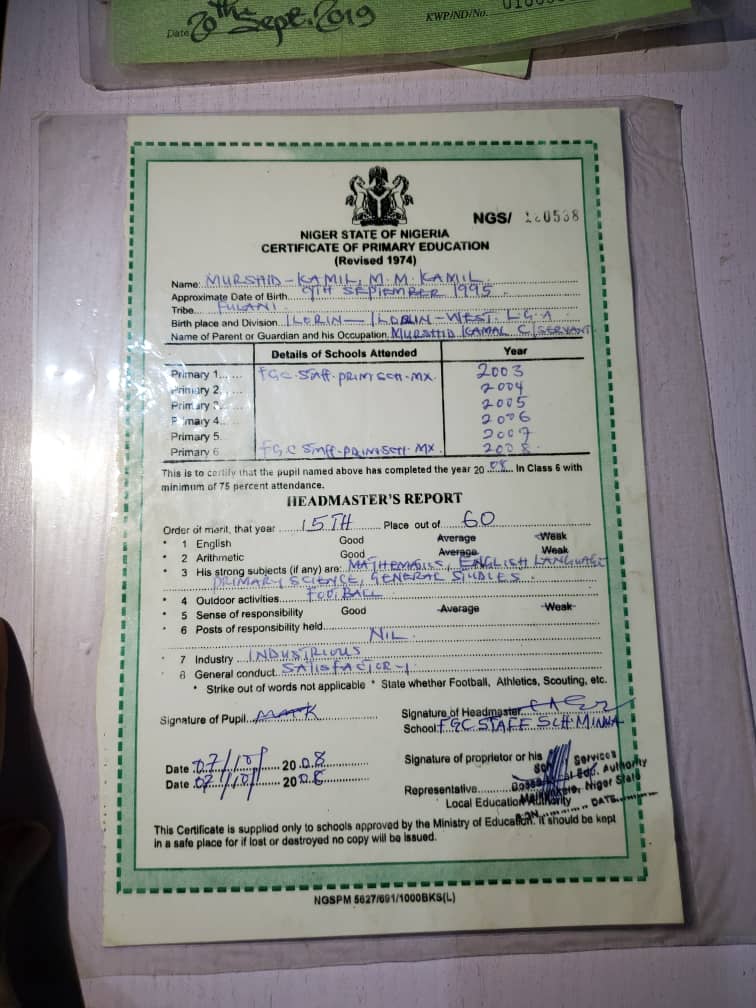 Date 20th Sept. 2019
KWP/ND/No.
NGS/ 120538
NIGER STATE OF NIGERIA
CERTIFICATE OF PRIMARY EDUCATION
(Revised 1974)
Name: MURSHID-KAMIL, M.M. KAMIL.
Approximate Date of Birth 9TH SEPTEMBER 1995
Tribe FULANI
Birth place and Division ILORIN - ILORIN-WEST. L.G.A
Name of Parent or Guardian and his Occupation MURSHID KAMAL C/SERVANT
Details of Schools Attended Year
Primary 1 FGC. STAFF-PRIM SCH-MX. 2003
Primary 2 2004
Primary 3 2005
Primary 4 2006
Primary 5 2007
Primary 6 FGC STAFF-PRIM SCH. MX. 2008
This is to certify that the pupil named above has completed the year 20 08 In Class 6 with
minimum of 75 percent attendance.
HEADMASTER'S REPORT
Order of merit, that year 15TH Place out of 60
* 1 English Good Average Weak
* 2 Arithmetic Good Average Weak
* 3 His strong subjects (if any) are: MATHEMATICS, ENGLISH LANGUAGE
PRIMARY SCIENCE, GENERAL STUDIES.
* 4 Outdoor activities FOOTBALL
* 5 Sense of responsibility Good Average Weak
* 6 Posts of responsibility held
NIL
* 7 Industry INDUSTRIOUS
8 General conduct SATISFACTORY
* Strike out of words not applicable * State whether Football, Athletics, Scouting, etc.
Signature of Pupil
Signature of Headmaster
School FGC STAFF SCH MINNA
Date 07/10/ 20 08
Date 07/10/ 20 08
Signature of proprietor or his
Representative
Local Education Authority
Services
Edu. Authority
Niger State
SIGN DATE
This Certificate is supplied only to schools approved by the Ministry of Education. It should be kept
in a safe place for if lost or destroyed no copy will be issued.
NGSPM 5627/691/1000BKS(L)